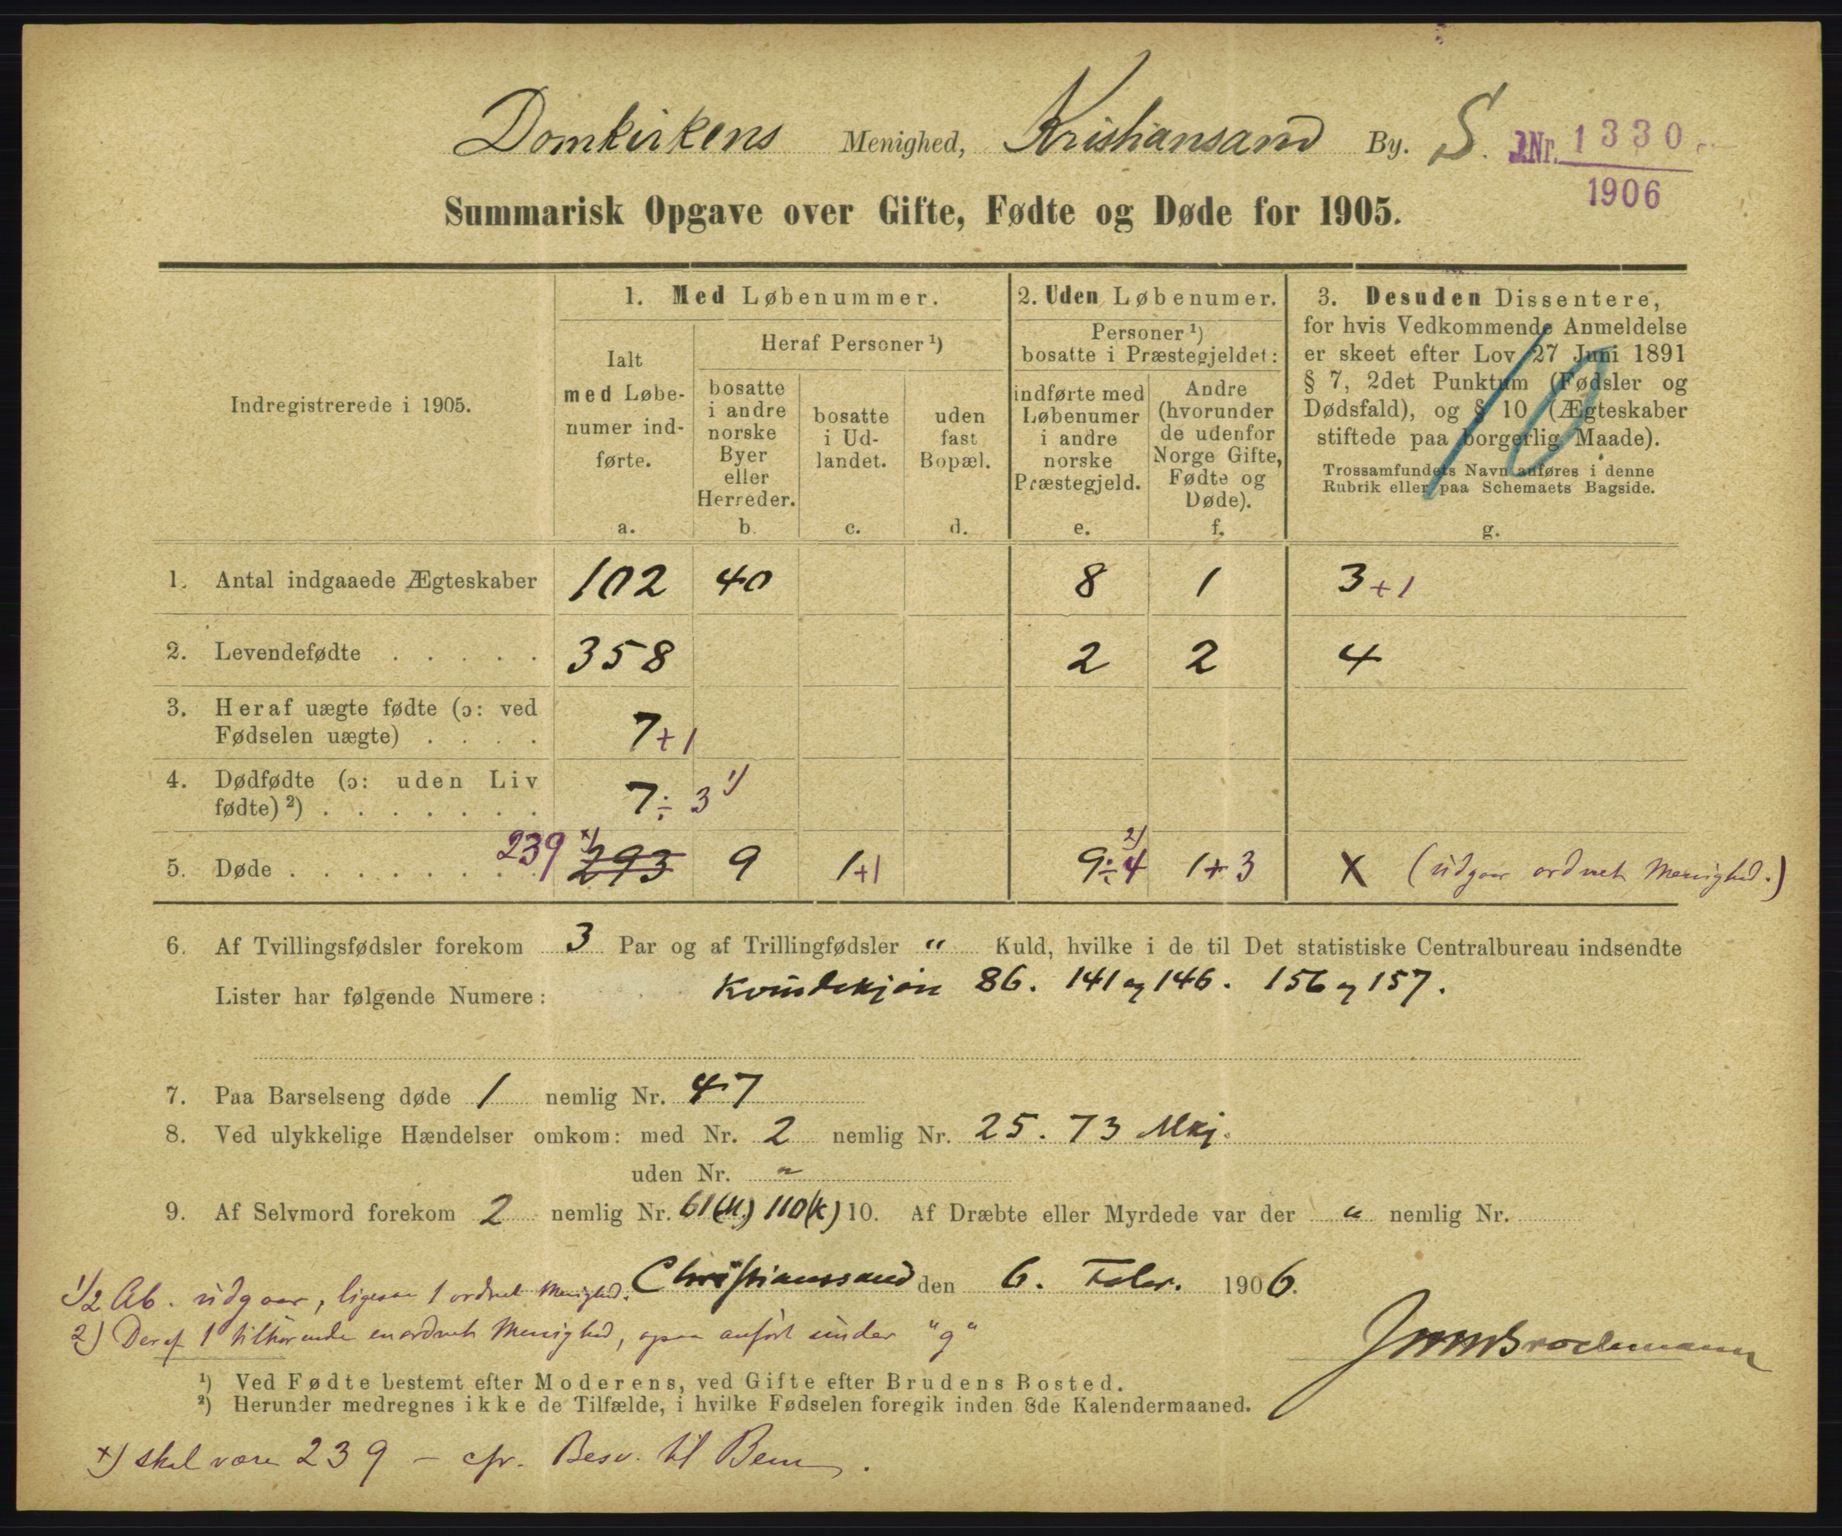 Domkirkens Menighed, Kristiansand By. S. J.Nr. 1330
1906
Summarisk Opgave over Gifte, Fødte og Døde for 1905.
Indregistrerede i 1905.
1. Med Løbenummer.
Ialt
med Løbe-
numer ind-
førte.
a.
Heraf Personer ¹)
bosatte
i andre
norske
Byer
eller
Herreder.
b.
bosatte
i Ud-
landet.
c.
uden
fast
Bopæl.
d.
2. Uden Løbenumer.
Personer ¹)
bosatte i Præstegjeldet:
indførte med
Løbenumer
i andre
norske
Præstegjeld.
e.
Andre
(hvorunder
de udenfor
Norge Gifte,
Fødte og
Døde).
f.
3. Desuden Dissentere,
for hvis Vedkommende Anmeldelse
er skeet efter Lov 27 Juni 1891
§ 7, 2det Punktum (Fødsler og
Dødsfald), og § 10 (Ægteskaber
stiftede paa borgerlig Maade).
Trossamfundets Navn anføres i denne
Rubrik eller paa Schemaets Bagside.
g.
10
1. Antal indgaaede Ægteskaber 102 40 8 1 3 + 1
2. Levendefødte . . . . . 358 2 2 4
3. Heraf uægte fødte (ɔ: ved
Fødselen uægte) . . . . 7 + 1
4. Dødfødte (ɔ: uden Liv
fødte) ²) . . . . . . . 7 ÷ 3 ¹)
5. Døde . . . . . . . . 239 ×) 293 9 1+1 9 ÷ 4 ²) 1 + 3 X (udgaar ordnet Menighed.)
6. Af Tvillingsfødsler forekom 3 Par og af Trillingfødsler " Kuld, hvilke i de til Det statistiske Centralbureau indsendte
Lister har følgende Numere: Kvindekjøn 86. 141 og 146. 156 og 157.
7. Paa Barselseng døde 1 nemlig Nr. 47
8. Ved ulykkelige Hændelser omkom: med Nr. 2 nemlig Nr. 25. 73 Mkj.
uden Nr. "
9. Af Selvmord forekom 2 nemlig Nr. 61 (M.) 110 (K) 10. Af Dræbte eller Myrdede var der " nemlig Nr.
Christianssand den 6. Febr. 1906.
1) 2 Ab. udgaar, ligesaa 1 ordnet Menighed.
2) Deraf 1 tilhørende en ordnet Menighed, ogsaa anført under "g"
¹) Ved Fødte bestemt efter Moderens, ved Gifte efter Brudens Bosted.
²) Herunder medregnes ikke de Tilfælde, i hvilke Fødselen foregik inden 8de Kalendermaaned.
×) skal være 239 – cfr. Besv. til Bem.